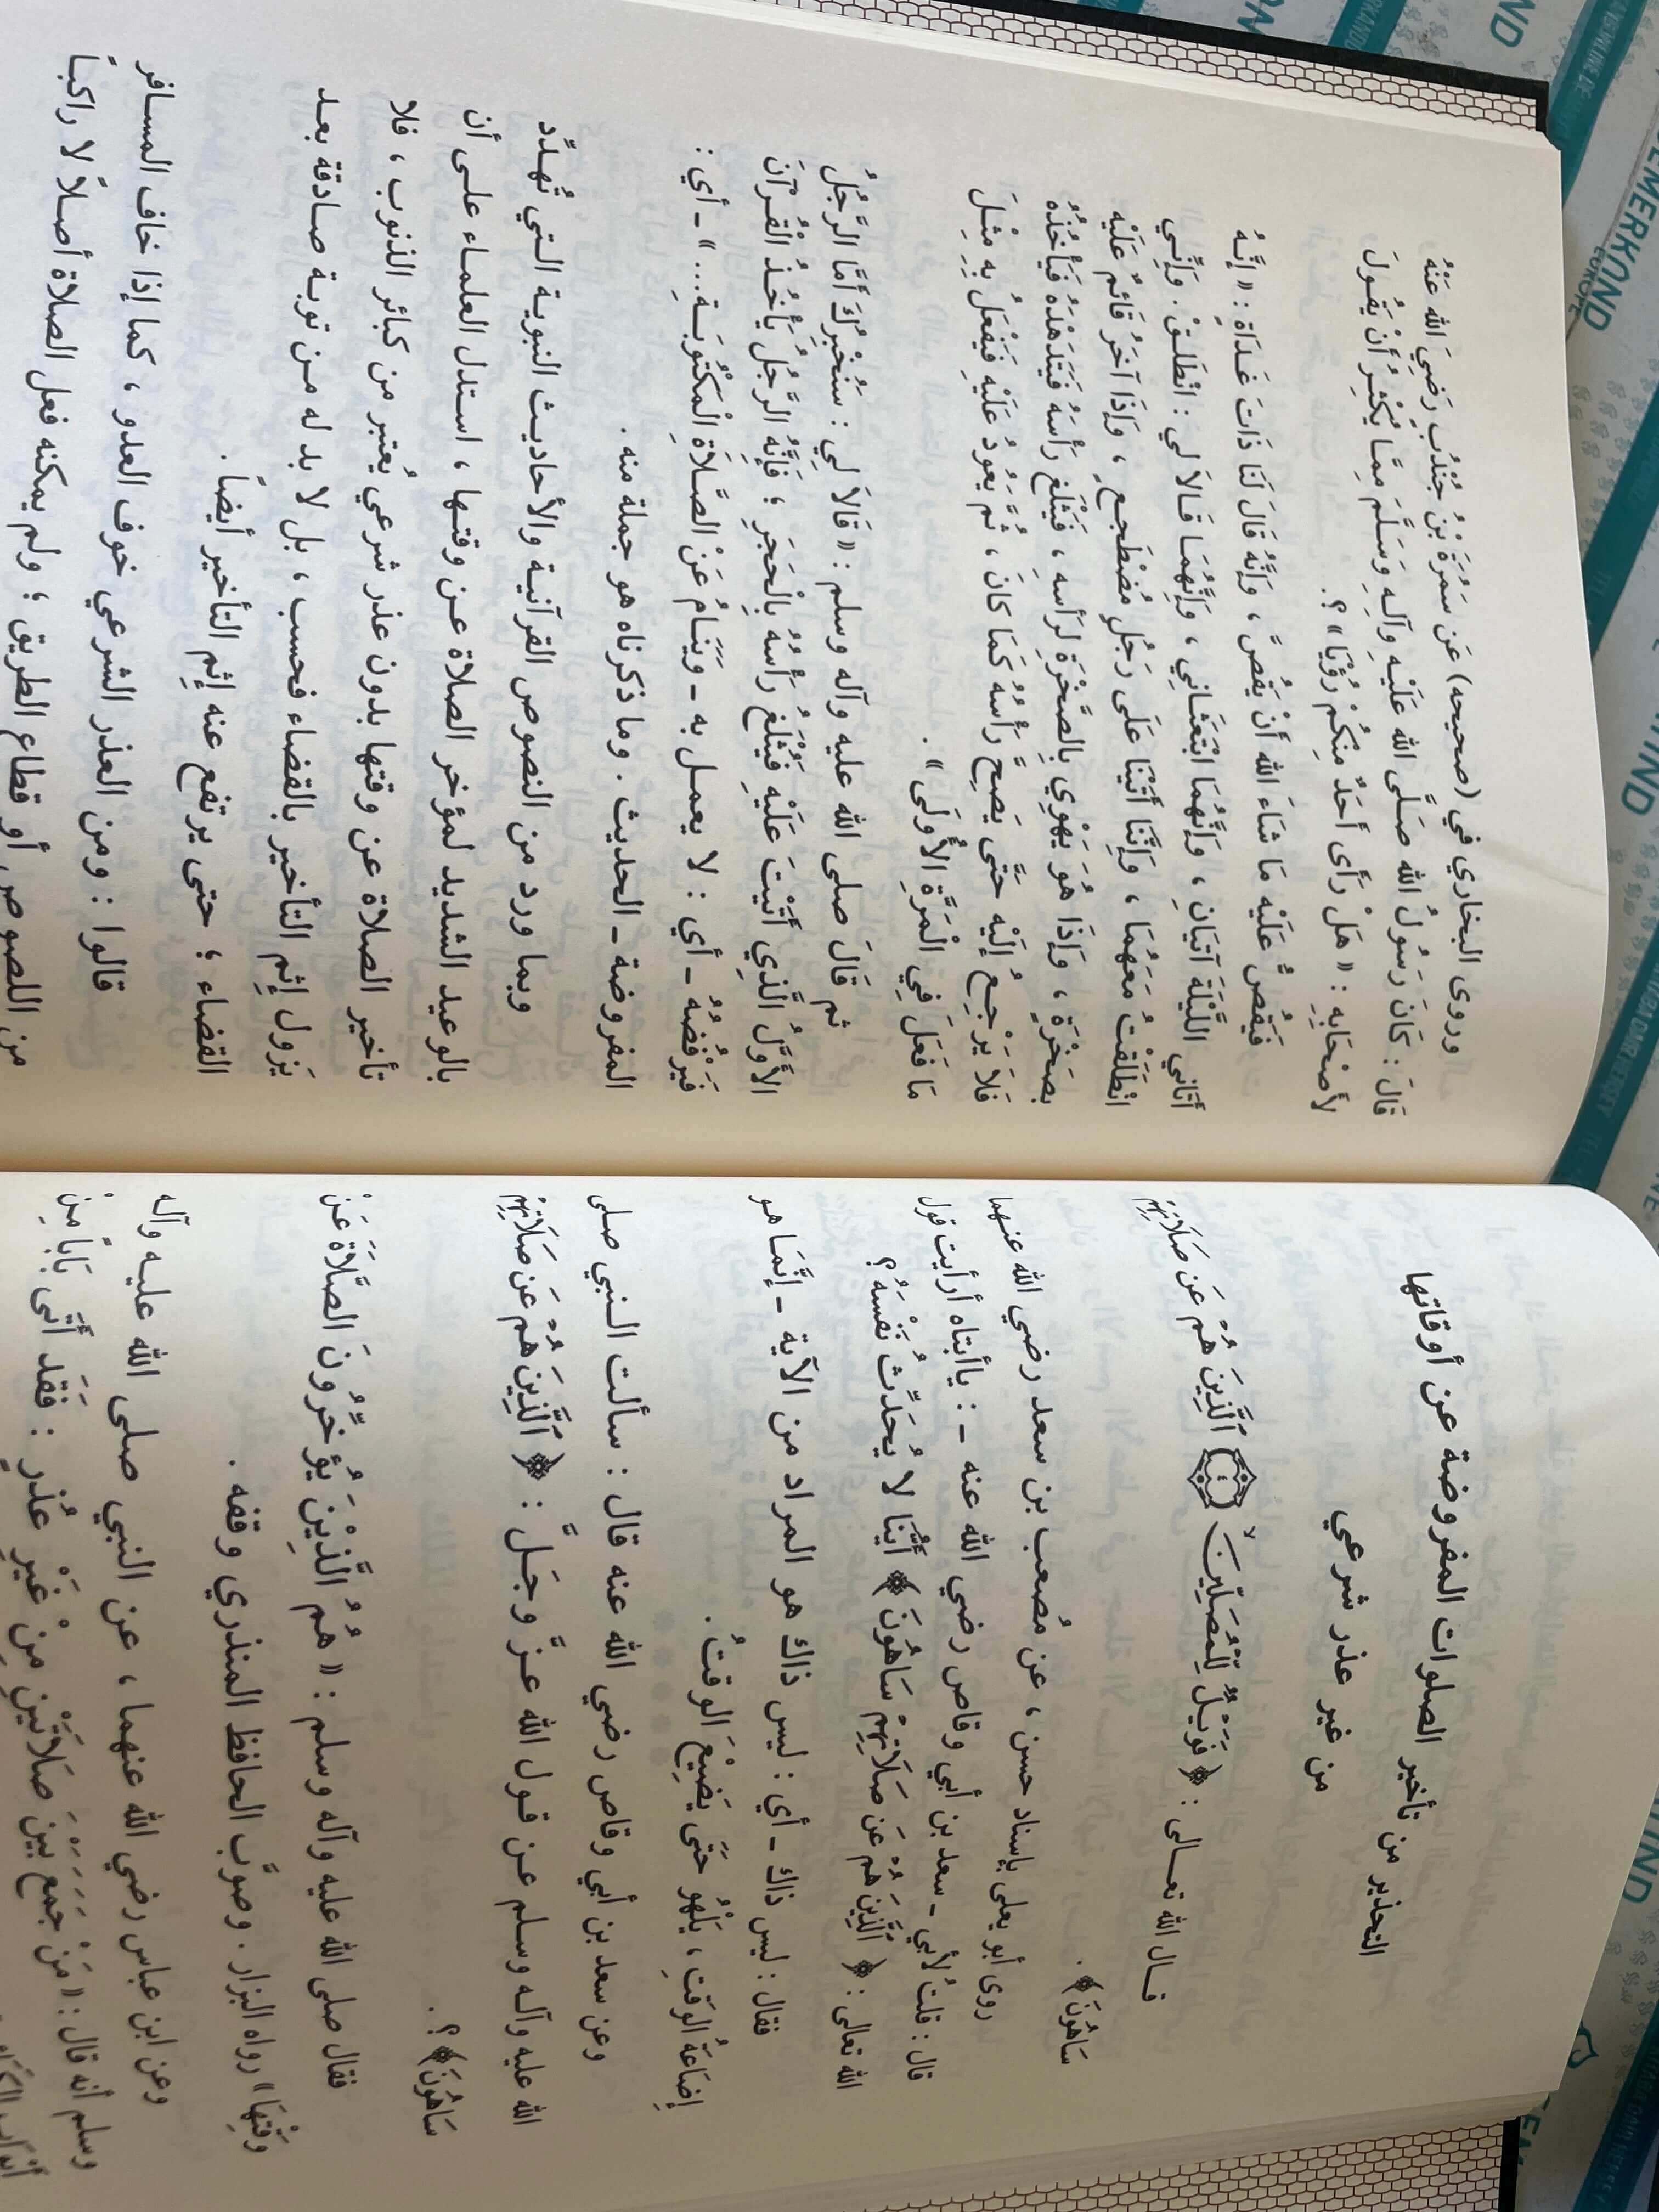 التحذير من تأخير الصلوات المفروضة عن أوقاتها
من غير عذر شرعي
قال الله تعالى : ﴿ فَوَيْلٌ لِّلْمُصَلِّينَ ۙ ٤ الَّذِينَ هُمْ عَن صَلَاتِهِمْ
سَاهُونَ ﴾ .
روى أبو يعلى بإسناد حسن ، عن مُصعب بن سعد رضي الله عنهما
قال : قلتُ لأبي ـ سعد بن أبي وقاص رضي الله عنه ـ : ياأبتاه أرأيت قول
الله تعالى : ﴿ الَّذِينَ هُمْ عَن صَلَاتِهِمْ سَاهُونَ ﴾ أَيُّنَا لاَ يُحَدِّثُ نَفْسَهُ ؟
فقال : ليس ذاك ـ أي : ليس ذاك هو المراد من الآية ـ إِنَّمَا هو
إِضَاعَةُ الوَقتِ ، يَلْهُو حَتَّى يَضِيْعَ الوَقتُ .
وعن سعد بن أبي وقاص رضي الله عنه قال : سألت النبي صلى
الله عليه وآله وسلم عن قول الله عزَّ وجَلَّ : ﴿ الَّذِينَ هُمْ عَن صَلَاتِهِمْ
سَاهُونَ ﴾ ؟ .
فقال صلى الله عليه وآله وسلم : « هُمُ الَّذِيْنَ يُؤَخِّرُونَ الصَّلاَةَ عَنْ
وَقْتِهَا » رواه البزار . وصوَّب الحافظ المنذري وقفه .
وعن ابن عباس رضي الله عنهما ، عن النبي صلى الله عليه وآله
وسلم أنه قال : « مَنْ جَمَعَ بَيْنَ صَلاَتَيْنِ مِنْ غَيْرِ عُذرٍ : فَقَد أَتَى بَابَاً مِنْ
وروى البخاري في (صحيحه) عَن سَمُرَةَ بْنُ جُنْدُبٍ رَضِيَ الله عَنْهُ
قَالَ : كَانَ رَسُولُ الله صَلَّى الله عَلَيْهِ وَآلِهِ وَسَلَّمَ مِمَّا يُكْثِرُ أَنْ يَقُولَ
لأَصْحَابِهِ : « هَلْ رَأَى أَحَدٌ مِنكُمْ رُؤْيَا » ؟ .
فَيَقُصُّ عَلَيْهِ مَا شَاءَ الله أَنْ يَقُصَّ ، وَإِنَّهُ قَالَ لَنَا ذَاتَ غَدَاةٍ : « إِنَّهُ
أَتَانِي اللَّيْلَةَ آتيَانِ ، وَإِنَّهُمَا ابْتَعَثَانِي ، وَإِنَّهُمَا قَالاَ لي : انْطَلِقْ . وَإِنِّي
انْطَلَقْتُ مَعَهُمَا ، وَإِنَّنَا أَتَيْنَا عَلَى رَجُلٍ مُضْطَجعٍ ، وَإِذَا آخَرُ قَائِمٌ عَلَيْه
بصَخْرَةٍ ، وَإِذَا هُوَ يَهْوِي بالصَّخْرَةِ لرَأسهِ ، فَيَثْلَغُ رَأْسَهُ فَيَتَدَهْدَهُ فَيَأخُذُهُ
فَلاَ يَرْجِعُ إلَيْه حَتَّى يَصحَّ رَأْسُهُ كَمَا كَانَ ، ثُمَّ يَعودُ عَلَيْه فَيَفْعَلُ بِهِ مِثْلَ
مَا فَعَلَ فِي الْمَرَّةِ الأُولَى » .
ثم قَالَ صلى الله عليه وآله وسلم : « قَالاَ لِي : سَنُخْبِرُكَ أَمَّا الرَّجُلُ
الأَوَّلُ الَّذِي أَتَيْتَ عَلَيْهِ فَيُثْلَغُ رَأْسُهُ بِالْحَجَرِ ؛ فَإِنَّهُ الرَّجُلُ يَأْخُذُ الْقُرْآنَ
فَيَرْفُضُهُ ـ أي : لا يعمل به ـ وَيَنَامُ عَنْ الصَّلاَةِ الْمَكْتُوبَةِ ... » ـ أي :
المفروضة ـ الحديث . وما ذكرناه هو جملة منه .
وبما ورد من النصوص القرآنية والأحاديث النبوية التي تُهدِّد
بالوعيد الشديد لمؤخر الصلاة عن وقتها ، استدل العلماء على أن
تأخير الصلاة عن وقتها بدون عذر شرعي يُعتبر من كبائر الذنوب ، فلا
يَزول إثم التأخير بالقضاء فحسب ، بل لا بد له من توبة صادقة بعد
القضاء ؛ حتى يرتفع عنه إثم التأخير أيضاً .
قالوا : ومن العذر الشرعي خوف العدو ، كما إذا خاف المسافر
من اللصوص أو قطاع الطريق ؛ ولم يمكنه فعل الصلاة أصلاً لا راكباً
SEMERKAND
EUROPE